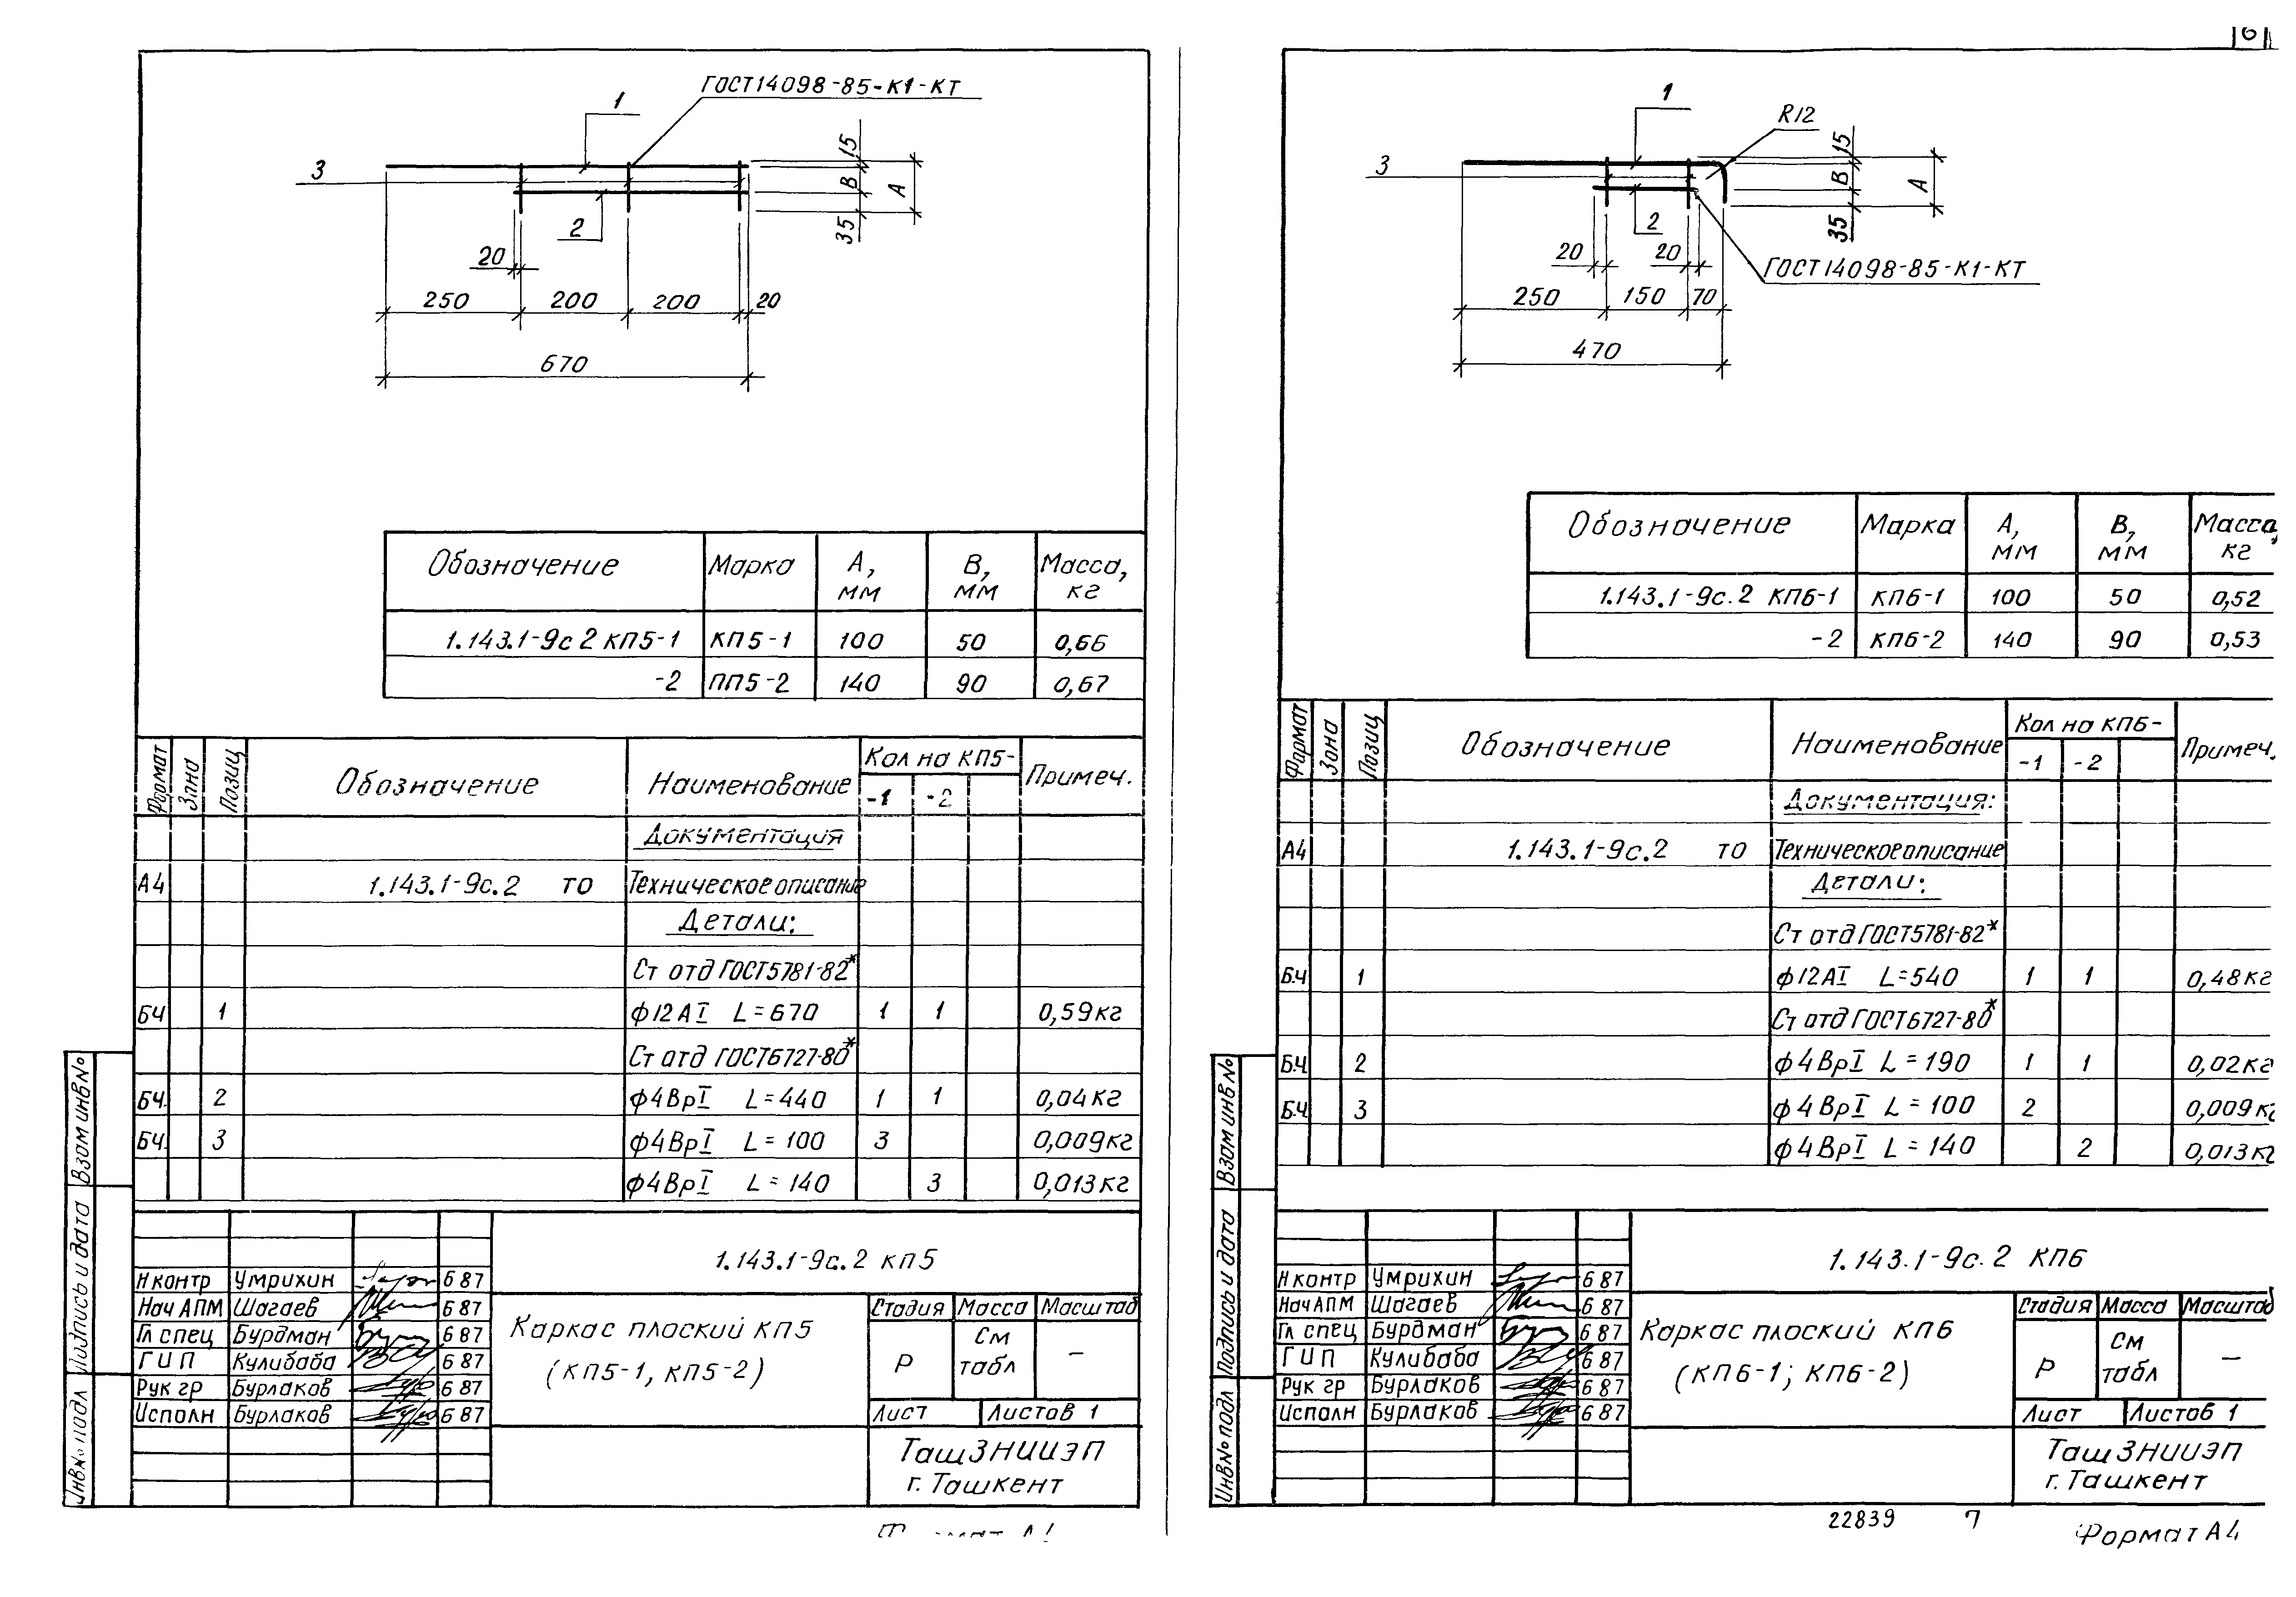 ГОСТ14098-85-К1-КТ
1
3
2
15
В
А
35
20
250 200 200 20
670
Обозначение Марка А, мм В, мм Масса, кг
1.143.1-9с 2 КП5-1 КП5-1 100 50 0,66
-2 ПП5-2 140 90 0,67
Формат Зона Позиц Обозначение Наименование Кол на КП5- Примеч.
-1 -2
Документация
А4 1.143.1-9с.2 ТО Техническое описание
Детали:
Ст отд ГОСТ5781-82*
БЧ 1 ф12АI L=670 1 1 0,59кг
Ст отд ГОСТ6727-80*
БЧ. 2 ф4ВрI L=440 1 1 0,04кг
БЧ. 3 ф4ВрI L=100 3 0,009кг
ф4ВрI L=140 3 0,013кг
1.143.1-9с.2 КП5
Н контр Умрихин 6 87
Нач АПМ Шагаев 6 87
Гл спец Бурдман 6 87
ГИП Кулибаба 6 87
Рук гр Бурлаков 6 87
Исполн Бурлаков 6 87
Каркас плоский КП5
(КП5-1, КП5-2)
Стадия Масса Масштаб
Р См табл –
Лист Листов 1
ТашЗНИИЭП
г. Ташкент
Инв№ подл Подпись и дата Взам инв№
6
1
R12
3
2
15
В
А
35
20 20
ГОСТ14098-85-К1-КТ
250 150 70
470
Обозначение Марка А, мм В, мм Масса, кг
1.143.1-9с.2 КП6-1 КП6-1 100 50 0,52
-2 КП6-2 140 90 0,53
Формат Зона Позиц Обозначение Наименование Кол на КП6- Примеч.
-1 -2
Документация:
А4 1.143.1-9с.2 ТО Техническое описание
Детали:
Ст отд ГОСТ5781-82*
БЧ 1 ф12АI L=540 1 1 0,48кг
Ст отд ГОСТ6727-80*
БЧ 2 ф4ВрI L=190 1 1 0,02кг
БЧ 3 ф4ВрI L=100 2 0,009кг
ф4ВрI L=140 2 0,013кг
1.143.1-9с.2 КП6
Н контр Умрихин 6 87
Нач АПМ Шагаев 6 87
Гл спец Бурдман 6 87
ГИП Кулибаба 6 87
Рук гр Бурлаков 6 87
Исполн Бурлаков 6 87
Каркас плоский КП6
(КП6-1; КП6-2)
Стадия Масса Масштаб
Р См табл –
Лист Листов 1
ТашЗНИИЭП
г. Ташкент
Инв№ подл Подпись и дата Взам инв№
22839 7
Формат А4